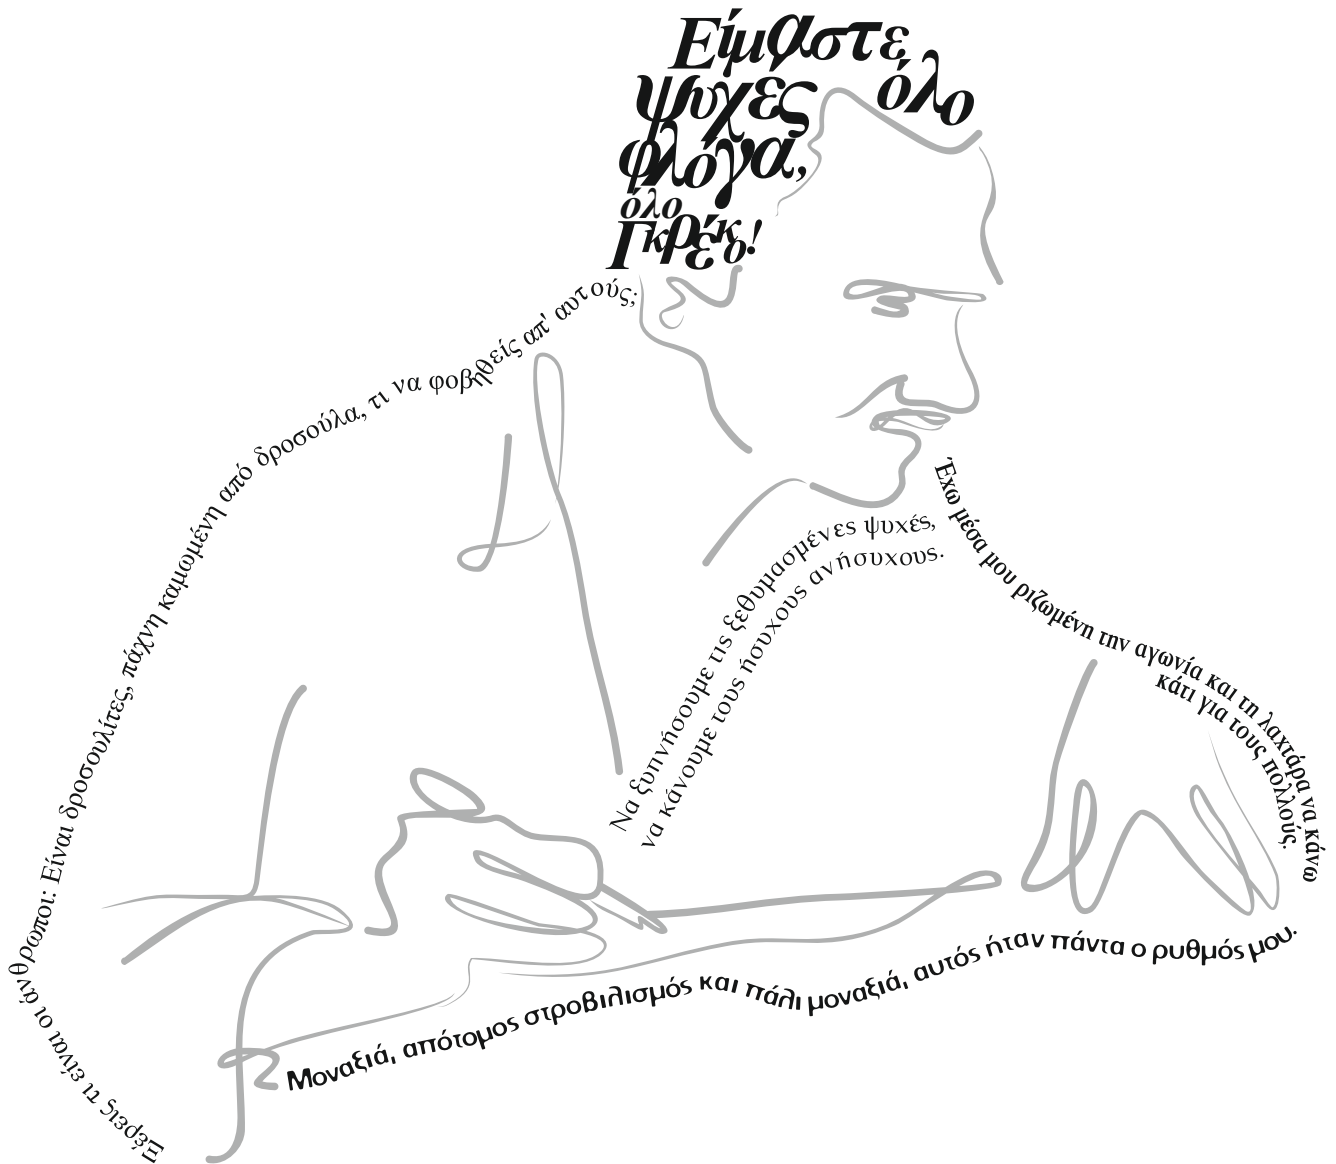 Είμαστε
ψυχές όλο
φλόγα,
όλο
Γκρέκο!
Ξέρεις τι είναι οι άνθρωποι: Είναι δροσουλίτες, πάχνη καμωμένη από δροσούλα, τι να φοβηθείς απ' αυτούς;
Να ξυπνήσουμε τις ξεθυμασμένες ψυχές,
να κάνουμε τους ήσυχους ανήσυχους.
Έχω μέσα μου ριζωμένη την αγωνία και τη λαχτάρα να κάνω
κάτι για τους πολλούς.
Μοναξιά, απότομος στροβιλισμός και πάλι μοναξιά, αυτός ήταν πάντα ο ρυθμός μου.